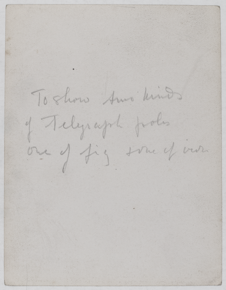 To show two kinds
of Telegraph poles
one of fig some of iron